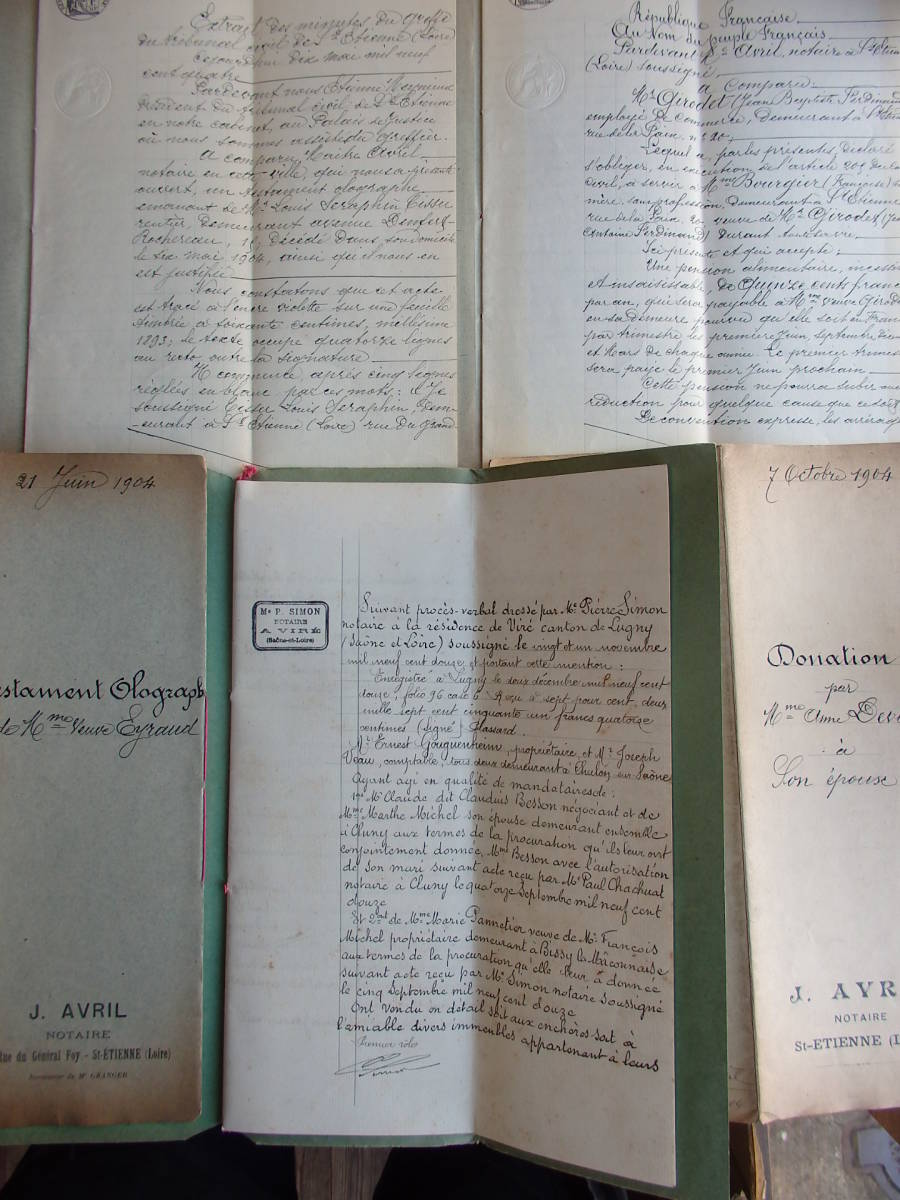 Extrait des minutes du Greffe
du tribunal civil de St Etienne (Loire)
cejourd'hui dix mai mil neuf
cent quatre
Pardevant nous Etienne
président du tribunal civil de St Etienne
en notre cabinet, au Palais de Justice
où nous sommes assisté du greffier.
A comparu Maître Avril
notaire en cette ville, qui nous a présenté
ouvert, un testament olographe
émanant de Mr Louis Séraphin Tisser
rentier, demeurant avenue Denfert-
Rochereau, 12, décédé dans son domicile
le six mai 1904, ainsi qu'il nous en
est justifié
Nous constatons que cet acte
est tracé à l'encre violette sur une feuille
timbrée à soixante centimes, millésime
1893; le texte occupe quatorze lignes
au recto outre la signature
Il commence après cinq lignes
réglées en blanc par ces mots: « Je
soussigné Tisser Louis Séraphin, dem-
eurant à St Etienne (Loire) rue du Grand
République Française
Au Nom du peuple Français
Pardevant Me Avril, notaire à St Etien
(Loire) soussigné
a Comparu:
Mr Girodet (Jean Baptiste Ferdinand
employé de Commerce, demeurant à St Eti
rue de la Paix no 20,
Lequel a, par les présentes, déclaré
s'obliger, en exécution de l'article 205 du Co
Civil, à servir à Mme Bourgier (Françoise) sa
mère, sans profession, demeurant à St Etienne
rue de la Paix 20 veuve de Mr Girodet (Jean
Antoine Ferdinand) durant
Ici présente et qui accepte;
Une pension alimentaire, incessi
et insaisissable, de Quinze cents franc
par an, qui sera payable à Mme veuve Girod
en sa demeure pourvu qu'elle soit en Fran
par trimestre les premier Juin, septembre
et Mars de chaque année. Le premier trimes
sera payé le premier Juin prochain
Cette pension ne pourra subir auc
réduction pour quelque cause que ce soit
De convention expresse, les arrérage
21 Juin 1904
estament Olograph
de Mme Veuve Eyraud
J. AVRIL
NOTAIRE
Rue du Général Foy - St-ÉTIENNE (Loire)
Successeur de Me GRANGER
Me P. SIMON
NOTAIRE
A VIRÉ
(Saône-et-Loire)
Suivant procès-verbal dressé par Me Pierre Simon
notaire à la résidence de Viré canton de Lugny
(Saône et Loire) soussigné le vingt et un novembre
mil neuf cent douze, et portant cette mention:
"Enregistré à Lugny le deux décembre mil neuf cent
douze, folio 96 case 6. Reçu à sept pour cent, deux
mille sept cent cinquante un francs quatorze
centimes (signé) Hassard.
Mr Ernest Gouguenheim, propriétaire et Mr Joseph
Veau, comptable, tous deux demeurant à Chalon sur Saône
Ayant agi en qualité de mandataires de:
1ent Mr Claude dit Claudius Besson négociant et de
Mme Marthe Michel son épouse demeurant ensemble
à Cluny aux termes de la procuration qu'ils leur ont
conjointement donnée, Mme Besson avec l'autorisation
de son mari suivant acte reçu par Me Paul Chachuat
notaire à Cluny le quatorze Septembre mil neuf cent
douze
Et 2ent de Mme Marie Pannetier veuve de Mr François
Michel propriétaire demeurant à Bissy la Mâconnaise
aux termes de la procuration qu'elle leur a donnée
suivant acte reçu par Me Simon notaire soussigné
le cinq Septembre mil neuf cent douze
Ont vendu en détail soit aux enchères soit à
l'amiable divers immeubles appartenant à leurs
Premier rôle
Simon
7 Octobre 1904
Donation
par
Mme Anne Dev
à
Son épouse
J. AVR
NOTAIRE
St-ÉTIENNE (L